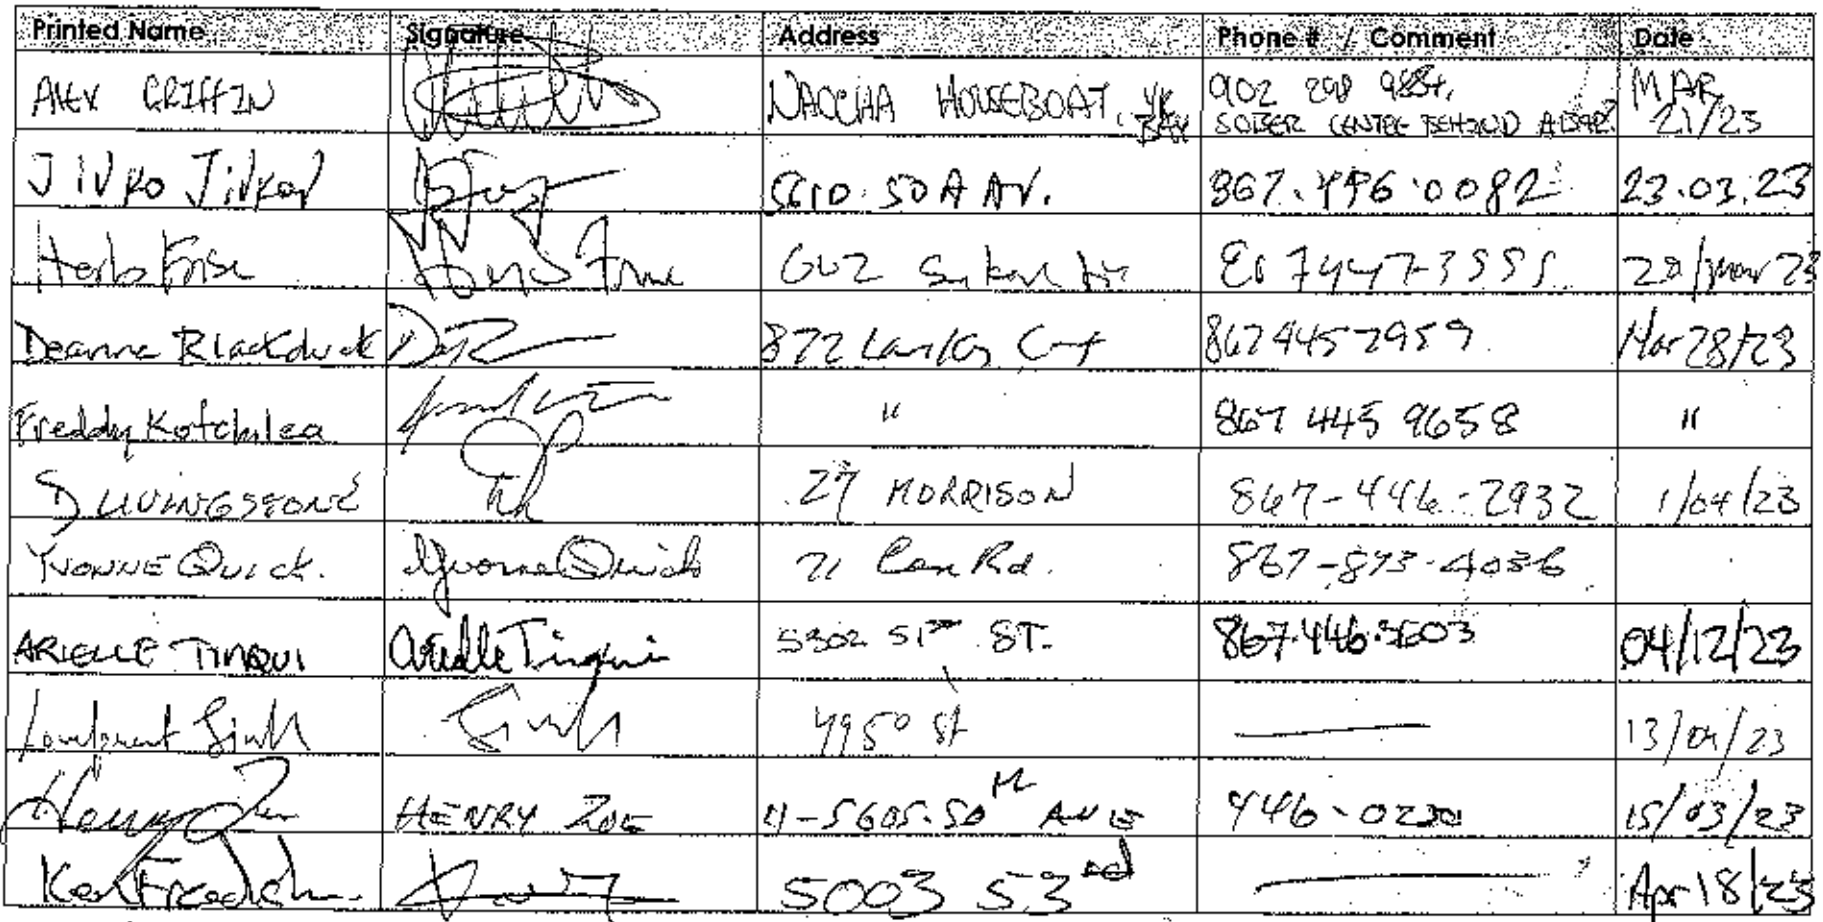 Printed Name Signature Address Phone # / Comment Date
ALEX GRIFFIN NAOCHA HOUSEBOAT, YK BAY 902 298 MAR 21/23
SOBER CENTRE BEHIND
JIVKO Jivkov 5610 50A AV. 867.446.0082 23.03.23
Herb 602 867 447-3555 28/Mar 23
Deanna Blackduck 872 Lanky Crt 867 445 7959 Mar 28/23
Freddy Kotchilea " 867 445 9658 "
D LIVINGSTONE 27 MORRISON 867-446-2932 1/04/23
YVONNE QUICK. Yvonne Quick 71 Con Rd. 867-873-4036
ARIELLE TINQUI Arielle Tinqui 5302 51ST ST. 867.446.3603 04/12/23
Singh 49 50 St — 13/04/23
Henry Zoe HENRY ZOE 4-5605-50th AVE 446-0230 15/03/23
Ken 5003 53rd — Apr 18/23